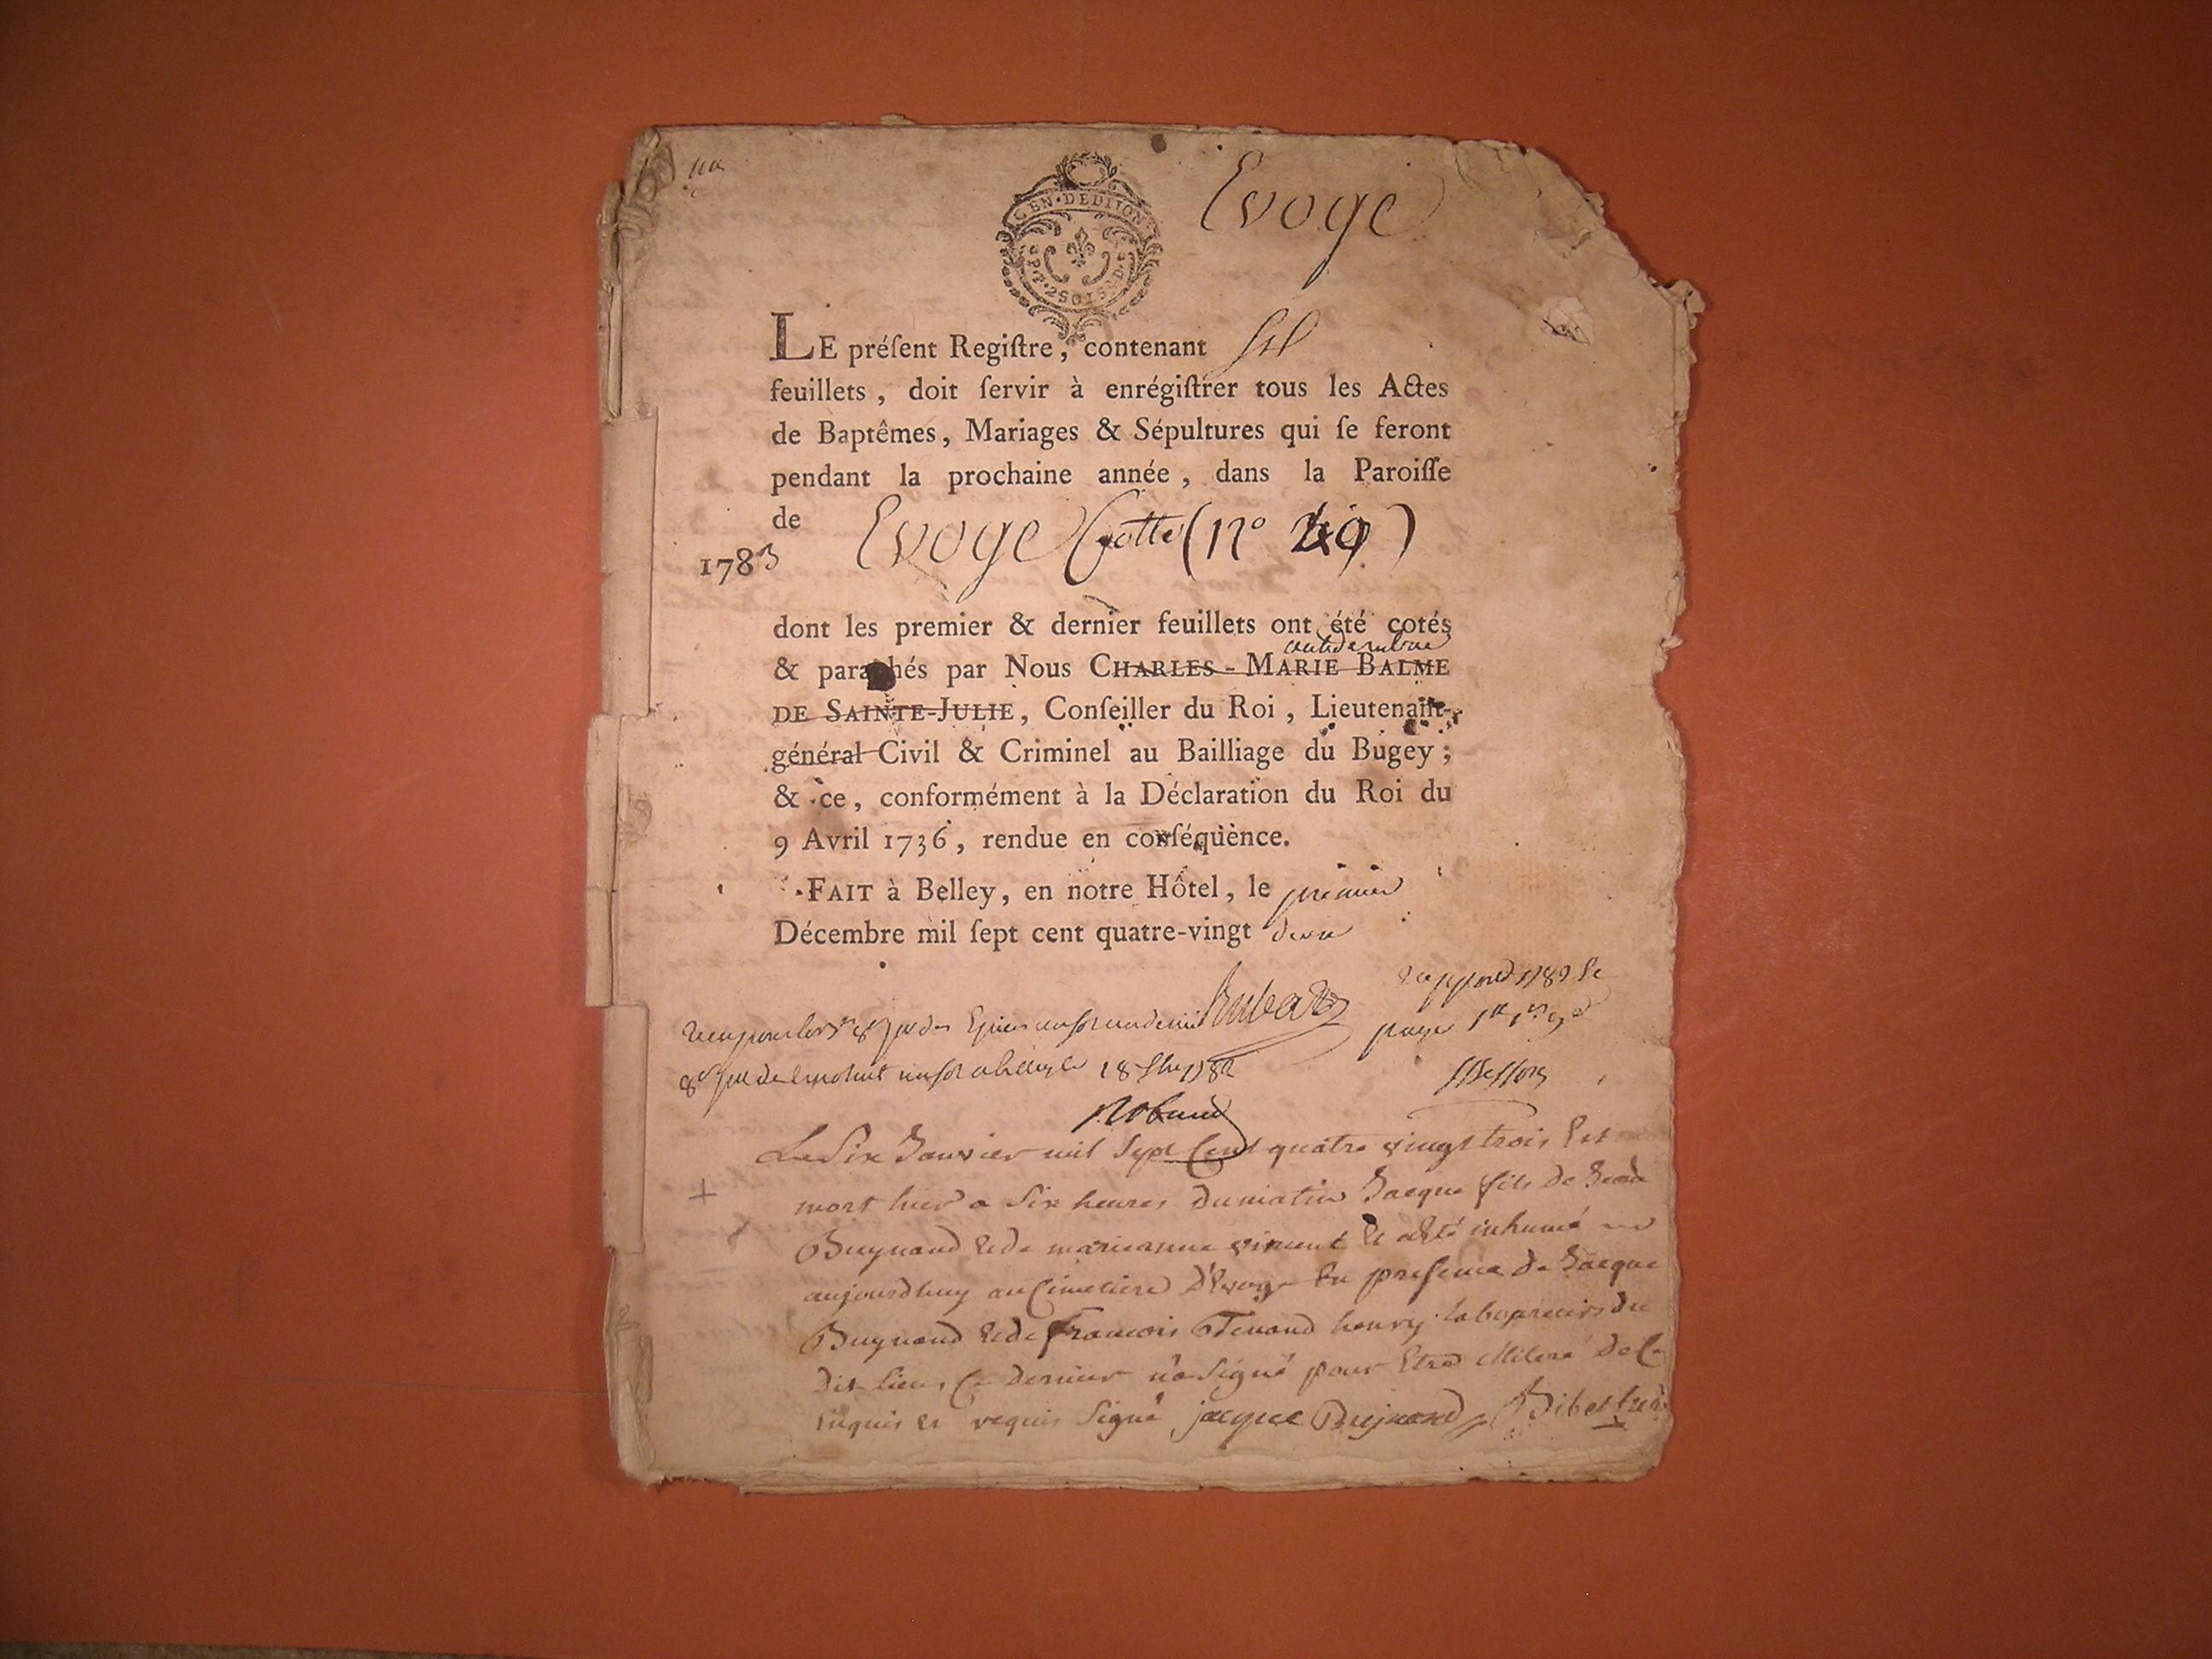 Evoge
GEN·DE DIJON
2 SOLS
LE préſent Regiſtre, contenant
feuillets, doit ſervir à enrégiſtrer tous les Actes
de Baptêmes, Mariages & Sépultures qui ſe feront
pendant la prochaine année, dans la Paroiſſe
de Evoge Cotté (N° 49)
1783
dont les premier & dernier feuillets ont été cotés
& paraphés par Nous CHARLES-MARIE BALME
DE SAINTE-JULIE, Conſeiller du Roi, Lieutenant-
général Civil & Criminel au Bailliage du Bugey;
& ce, conformément à la Déclaration du Roi du
9 Avril 1736, rendue en conſéquence.
FAIT à Belley, en notre Hôtel, le premier
Décembre mil ſept cent quatre-vingt deux
Le Six Janvier mil Sept Cent quatre vingt trois Est
mort hier a Six heures du matin Jacque fils de
Buynand et de marianne vincent et a été inhumé
aujourdhuy au Cimetiere d'Evoge En presence de Jacque
Buynand et de francois Tenand henry laboureurs du
dit lieu, Ce dernier n'a Signé pour Etre illiteré de Ce
inquis et requis Signé jacque Buynand